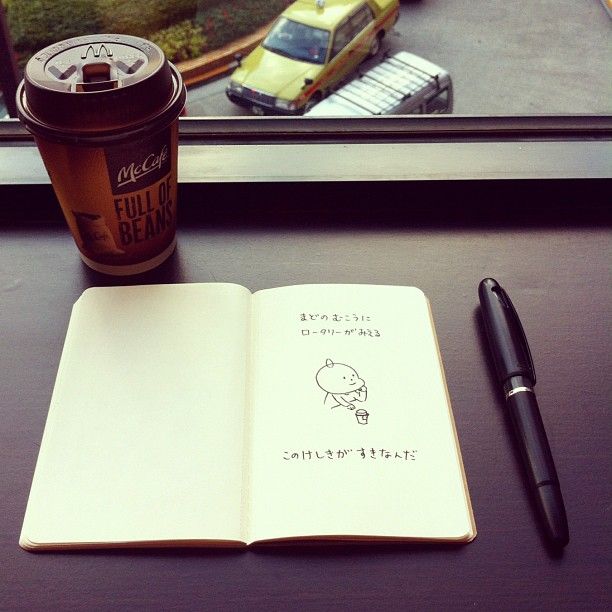 McCafé
FULL OF
BEANS
まどのむこうに
ロータリーがみえる
このけしきが すきなんだ